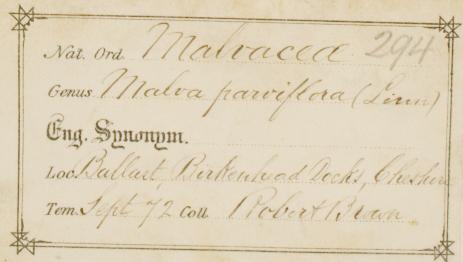 Nat. Ord. Malvacea 294
Genus Malva parviflora (Linn)
Eng. Synonym.
Loc. Ballast, Birkenhead Docks, Cheshire
Tem. Sept 72 Coll. Robert Brown